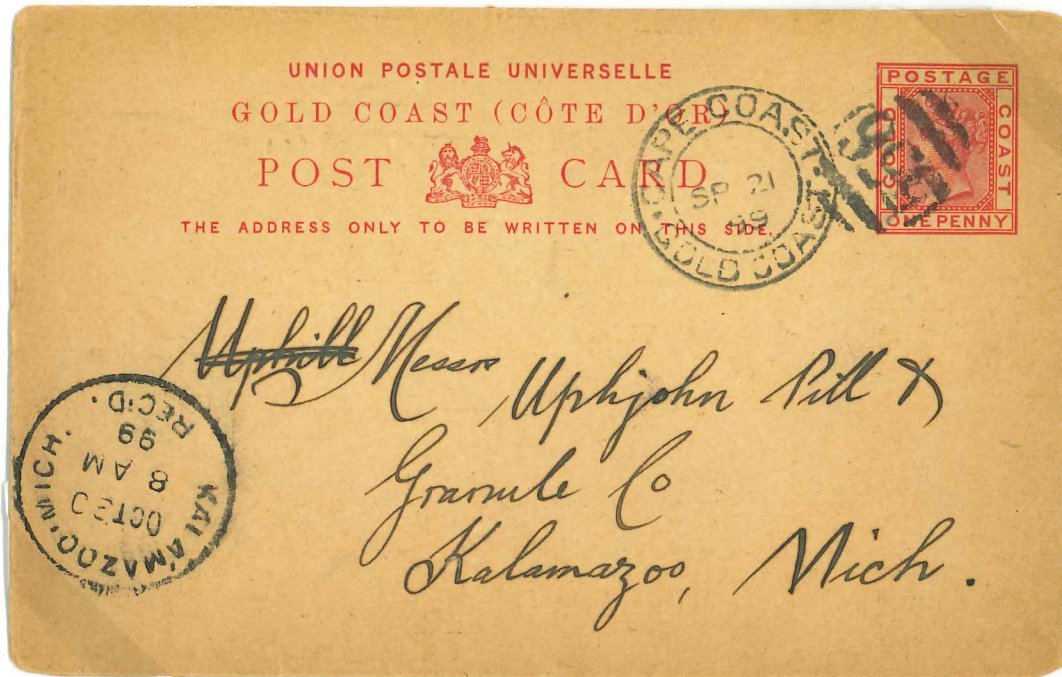 UNION POSTALE UNIVERSELLE
GOLD COAST (CÔTE D'OR)
POST CARD
THE ADDRESS ONLY TO BE WRITTEN ON THIS SIDE.
POSTAGE
GOLD COAST
ONE PENNY
CAPE COAST
SP 21
99
GOLD COAST
Uphill Messrs Uphjohn Pill &
Granule Co
Kalamazoo, Mich.
KALAMAZOO. MICH.
OCT 30
8 AM
99
REC'D.